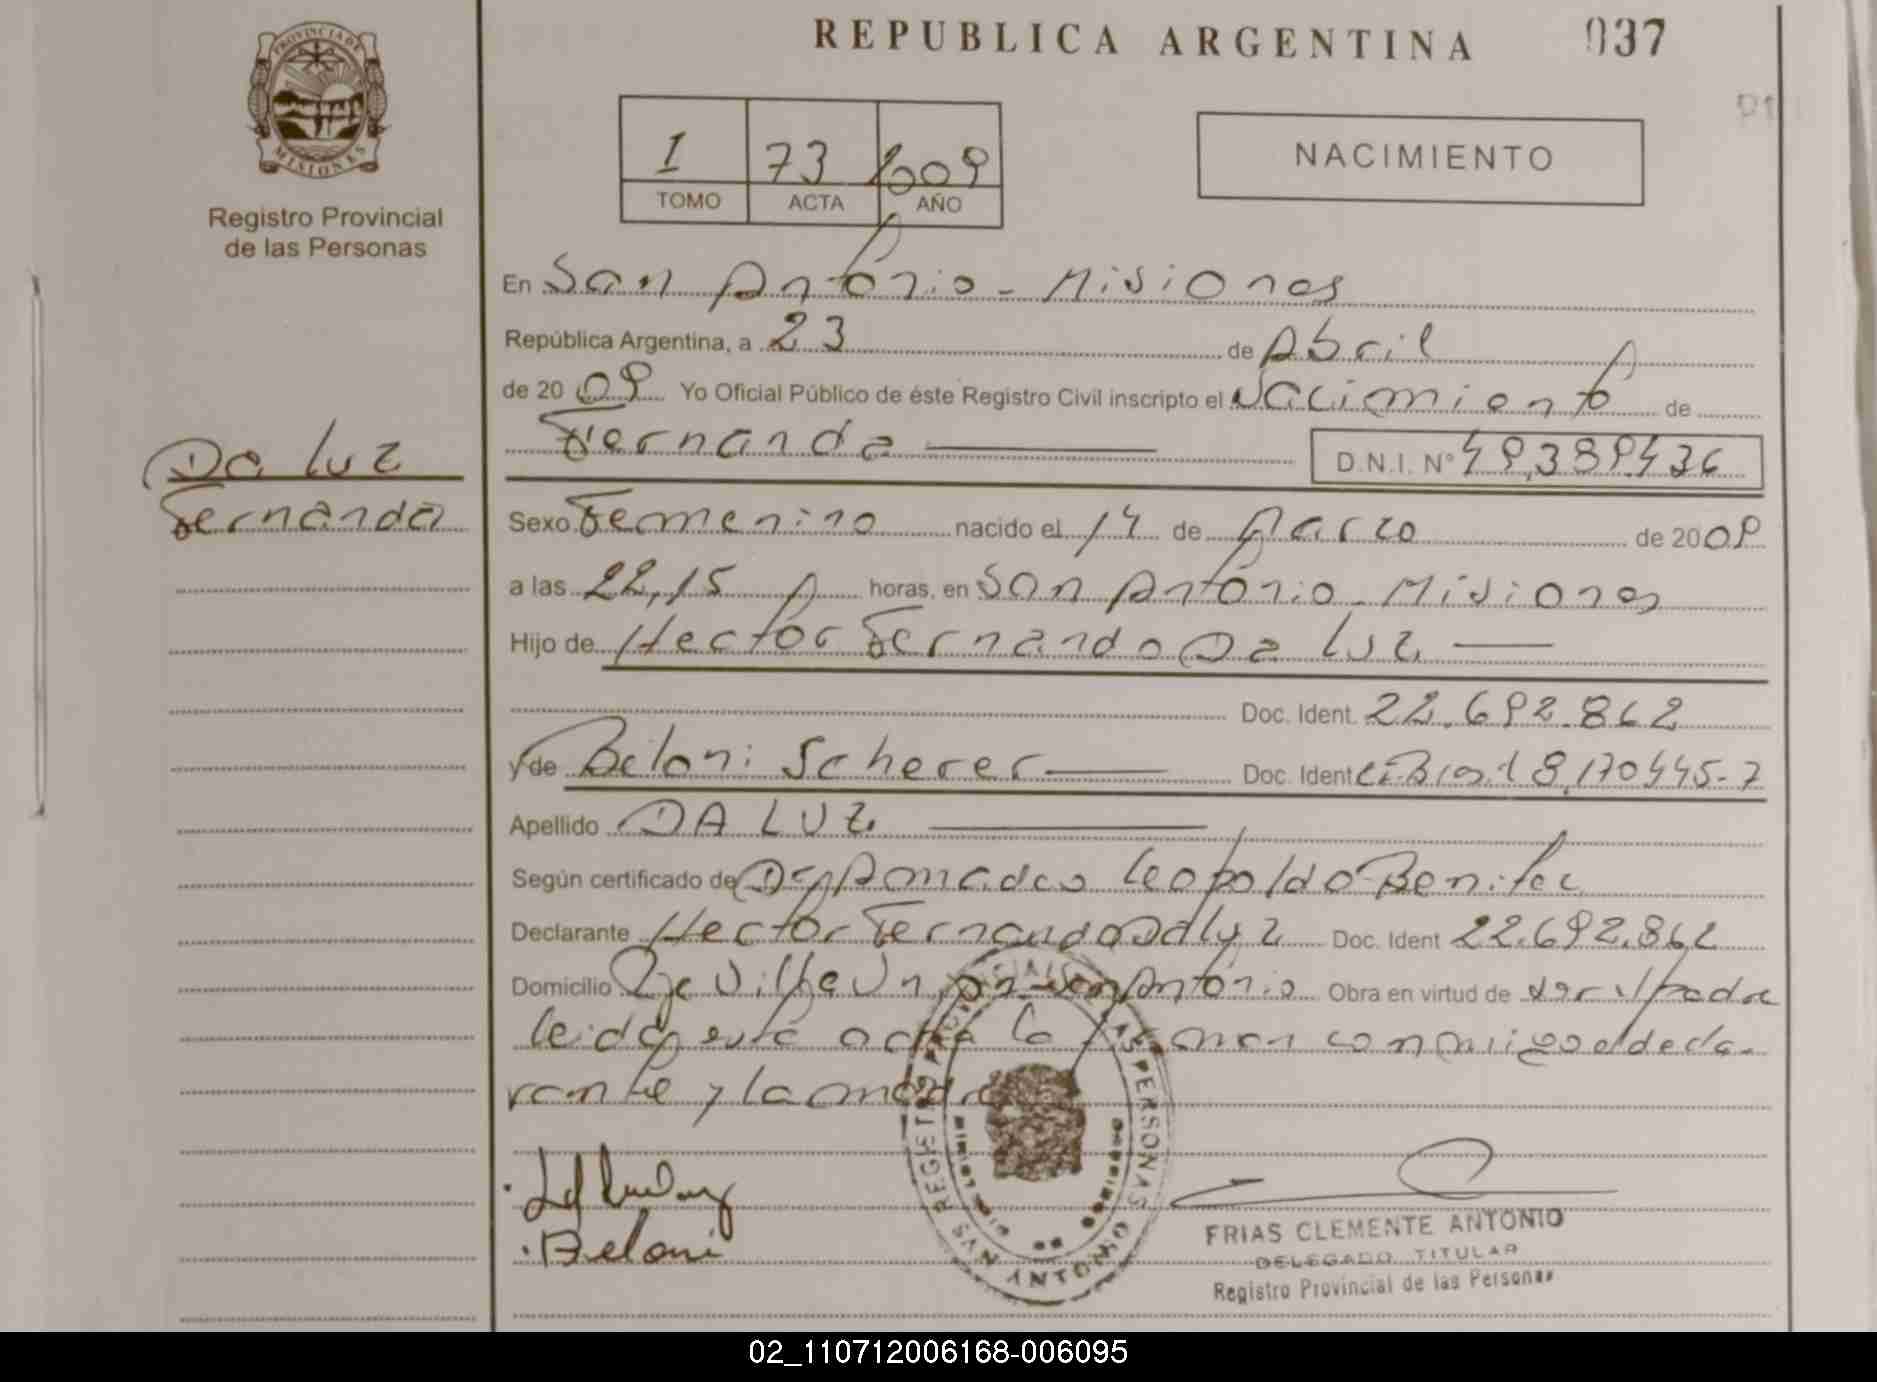 PROVINCIA DE
MISIONES
Registro Provincial
de las Personas
Da Luz
Fernanda
REPUBLICA ARGENTINA 037
1 73 2009
TOMO ACTA AÑO
NACIMIENTO
En San Antonio - Misiones
República Argentina, a 23 de Abril
de 2009 Yo Oficial Público de éste Registro Civil inscripto el Nacimiento de
Fernanda D.N.I. Nº 49.389.436
Sexo Femenino nacido el 14 de Marzo de 2009
a las 22,15 horas, en San Antonio - Misiones
Hijo de Hector Fernando Da Luz
Doc. Ident. 22.692.862
y de Beloni Scherer Doc. Ident. 8,170445-7
Apellido DA LUZ
Según certificado de Amadeo Leopoldo Benitez
Declarante Hector Fernando Da Luz Doc. Ident 22.692.862
Domicilio San Antonio Obra en virtud de ser el padre
leida esta acta la firman conmigo el decla-
rante y la madre
Beloni
REGISTRO PROVINCIAL DE LAS PERSONAS
SAN ANTONIO
FRIAS CLEMENTE ANTONIO
DELEGADO TITULAR
Registro Provincial de las Personas
02_110712006168-006095